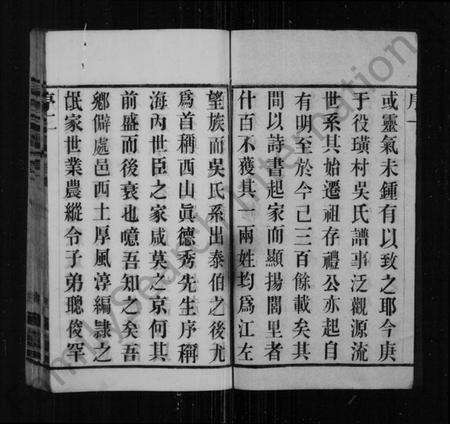 序一
或靈氣未鍾有以致之耶今庚
于役璜村吳氏譜事泛觀源流
世系其始遷祖存禮公亦起自
有明至於今已三百餘載矣其
間以詩書起家而顯揚閭里者
什百不獲其一兩姓均爲江左
望族而吳氏系出泰伯之後尤
爲首稱西山眞德秀先生序稱
海內世臣之家咸莫之京何其
前盛而後衰也噫吾知之矣吾
鄉僻處邑西土厚風淳編隸之
氓家世業農縱令子弟聰俊罕
序二
FamilySearch International